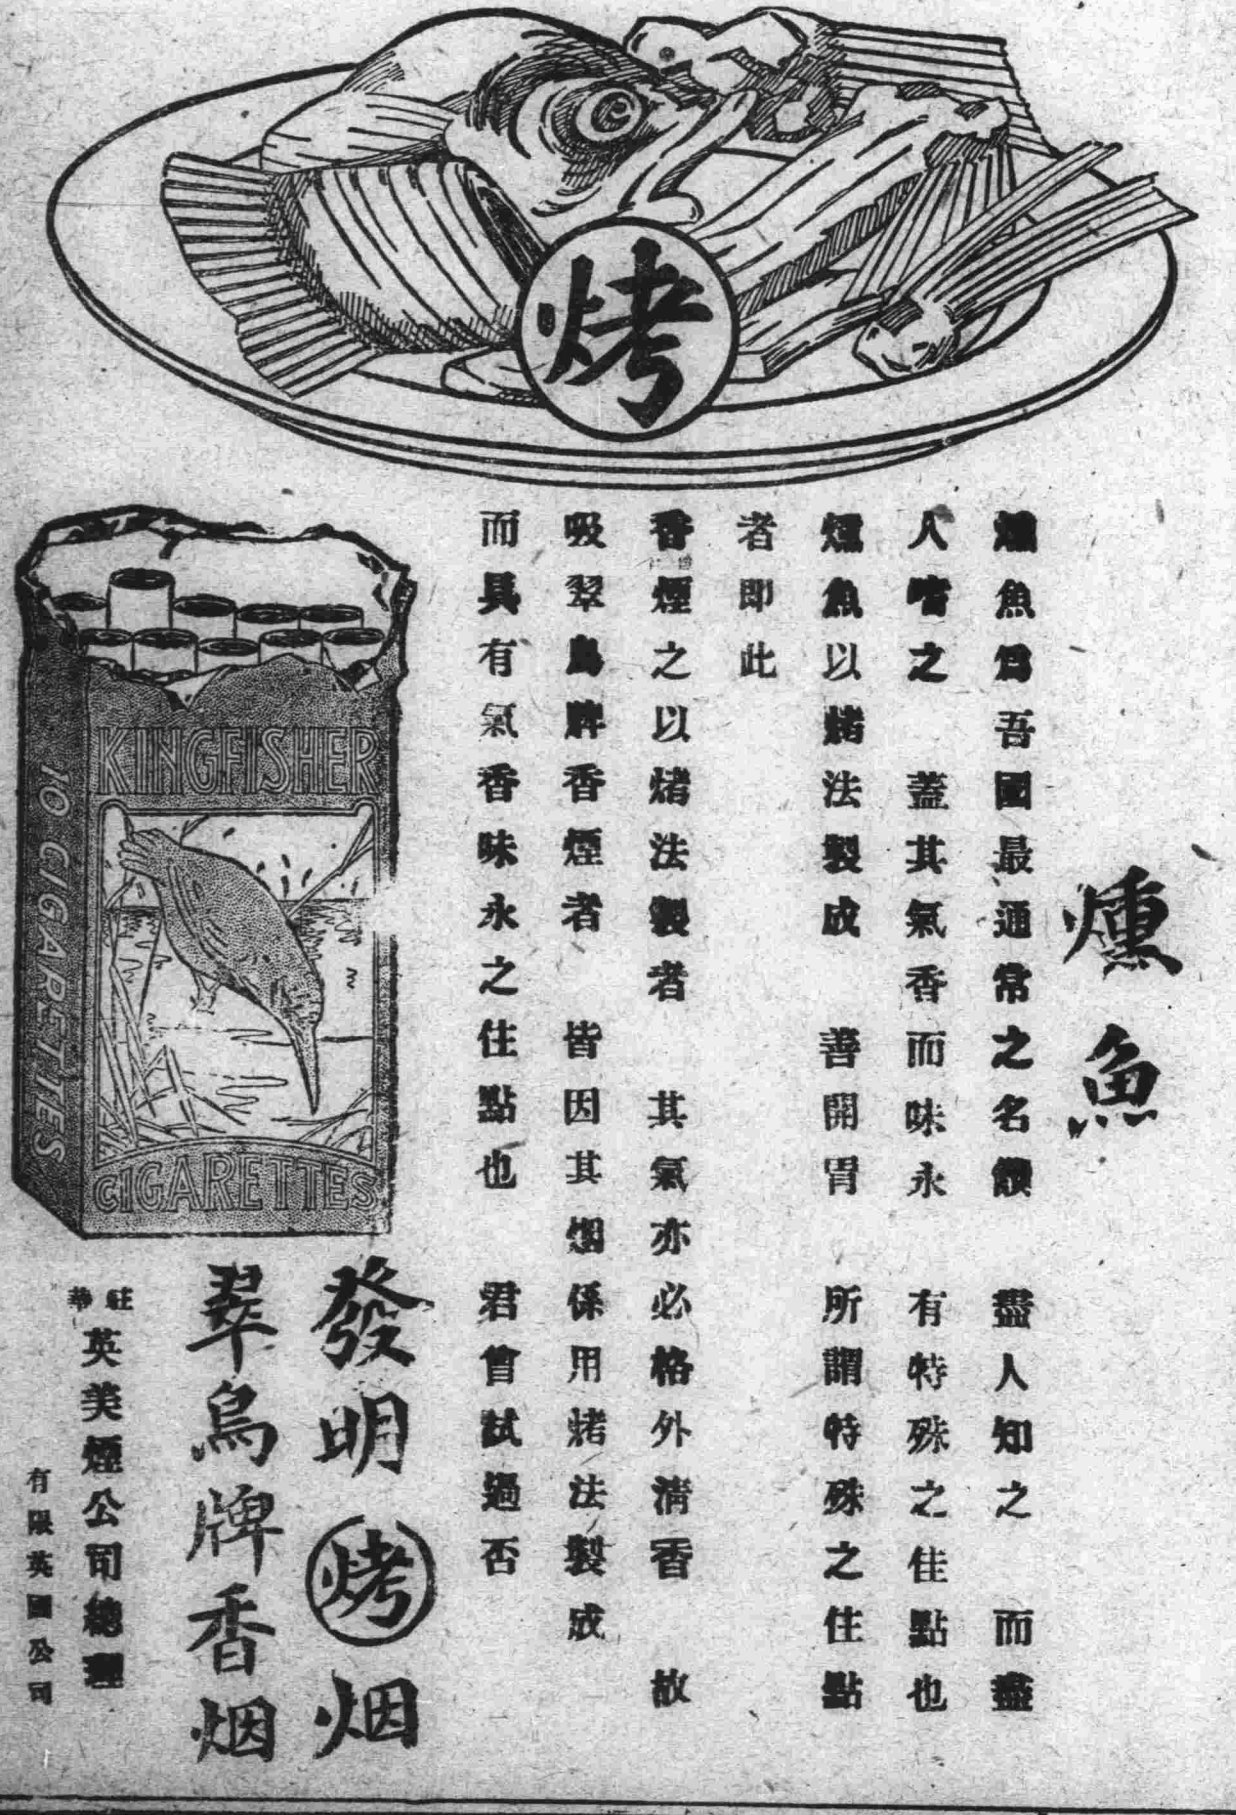 烤
燻魚
燻魚爲吾國最通常之名饌　盡人知之　而盡
人嗜之　蓋其氣香而味永　有特殊之佳點也
燻魚以烤法製成　善開胃　所謂特殊之佳點
者即此
香煙之以烤法製者　其氣亦必格外清香　故
吸翠鳥牌香煙者　皆因其烟係用烤法製成
而具有氣香味永之佳點也　君曾試過否
KINGFISHER
10 CIGARETTES
CIGARETTES
發明烤烟
翠鳥牌香烟
駐華英美煙公司總理
有限英國公司